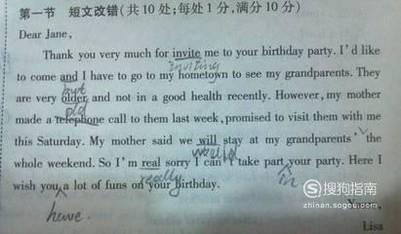 第一节 短文改错(共10处;每处1分,满分10分)
Dear Jane,
Thank you very much for invite me to your birthday party. I'd like
inviting
to come and I have to go to my hometown to see my grandparents. They
but
are very older and not in a good health recently. However, my mother
old
made a telephone call to them last week, promised to visit them with me
this Saturday. My mother said we will stay at my grandparents' the
would
whole weekend. So I'm real sorry I can't take part your party. Here I
really
in
wish you a lot of funs on your birthday.
have
搜狗指南
zhinan.sogou.com
Lisa